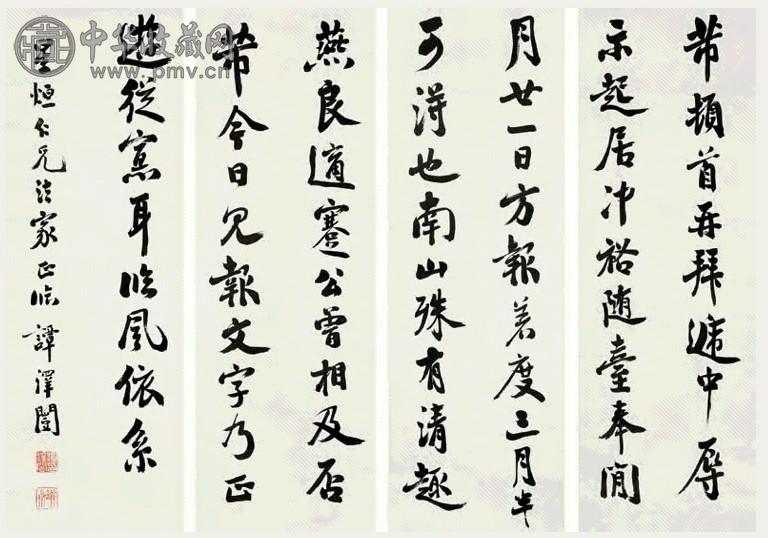 中华收藏网
www.pmv.cn
芾頓首再拜遞中辱
示起居冲裕随臺奉閒
月廿一日方報差度三月半
可得也南山殊有清趣
燕良適蹇公曾相及否
芾今日見報文字乃正
從耳臨風依系
星烜仁兄法家正臨 譚澤闓